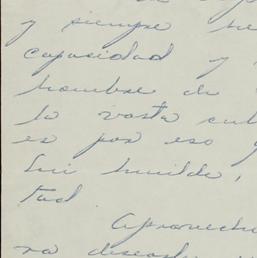 y siempre he
capasidad y
hombre de
la vasta cul
es por eso q
su humilde,
tad
Aprovecho
ra desearle